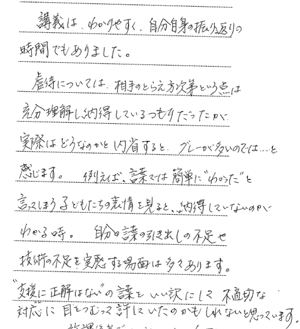 講義は、わかりやすく、自分自身の振り返りの
時間でもありました。
虐待については、相手のとらえ方次第という点は
充分理解し納得しているつもりだったが
実際はどうなのかと内省すると、グレーが多いのでは…と
感じます。 例えば、言葉では簡単に"わかった"と
言ってしまう子どもたちの表情を見ると、納得していないのが
わかる時。 自分の言葉の引き出しの不足や
技術の不足を実感する場面は多くあります。
"支援に正解はない"の言葉をいい訳にして不適切な
対応に目をつむって許していたのかもしれないと思っています。